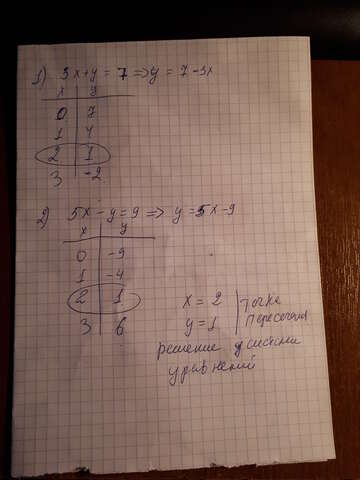 1) 3x+y=7=>y=7-3x
x y
0 7
1 4
2 1
3 -2
2) 5x-y=9=> y=5x-9
x y
0 -9
1 -4
2 1
3 6
x=2 точка
y=1 пересечения
решение системы
уравнений